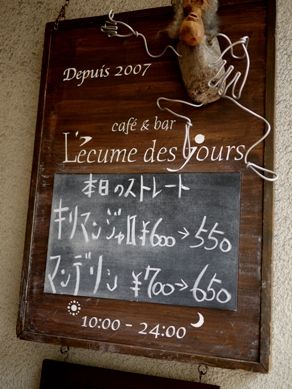 Depuis 2007
café & bar
L'écume des jours
本日のストレート
キリマンジャロ ¥600→550
マンデリン ¥700→650
10:00 - 24:00